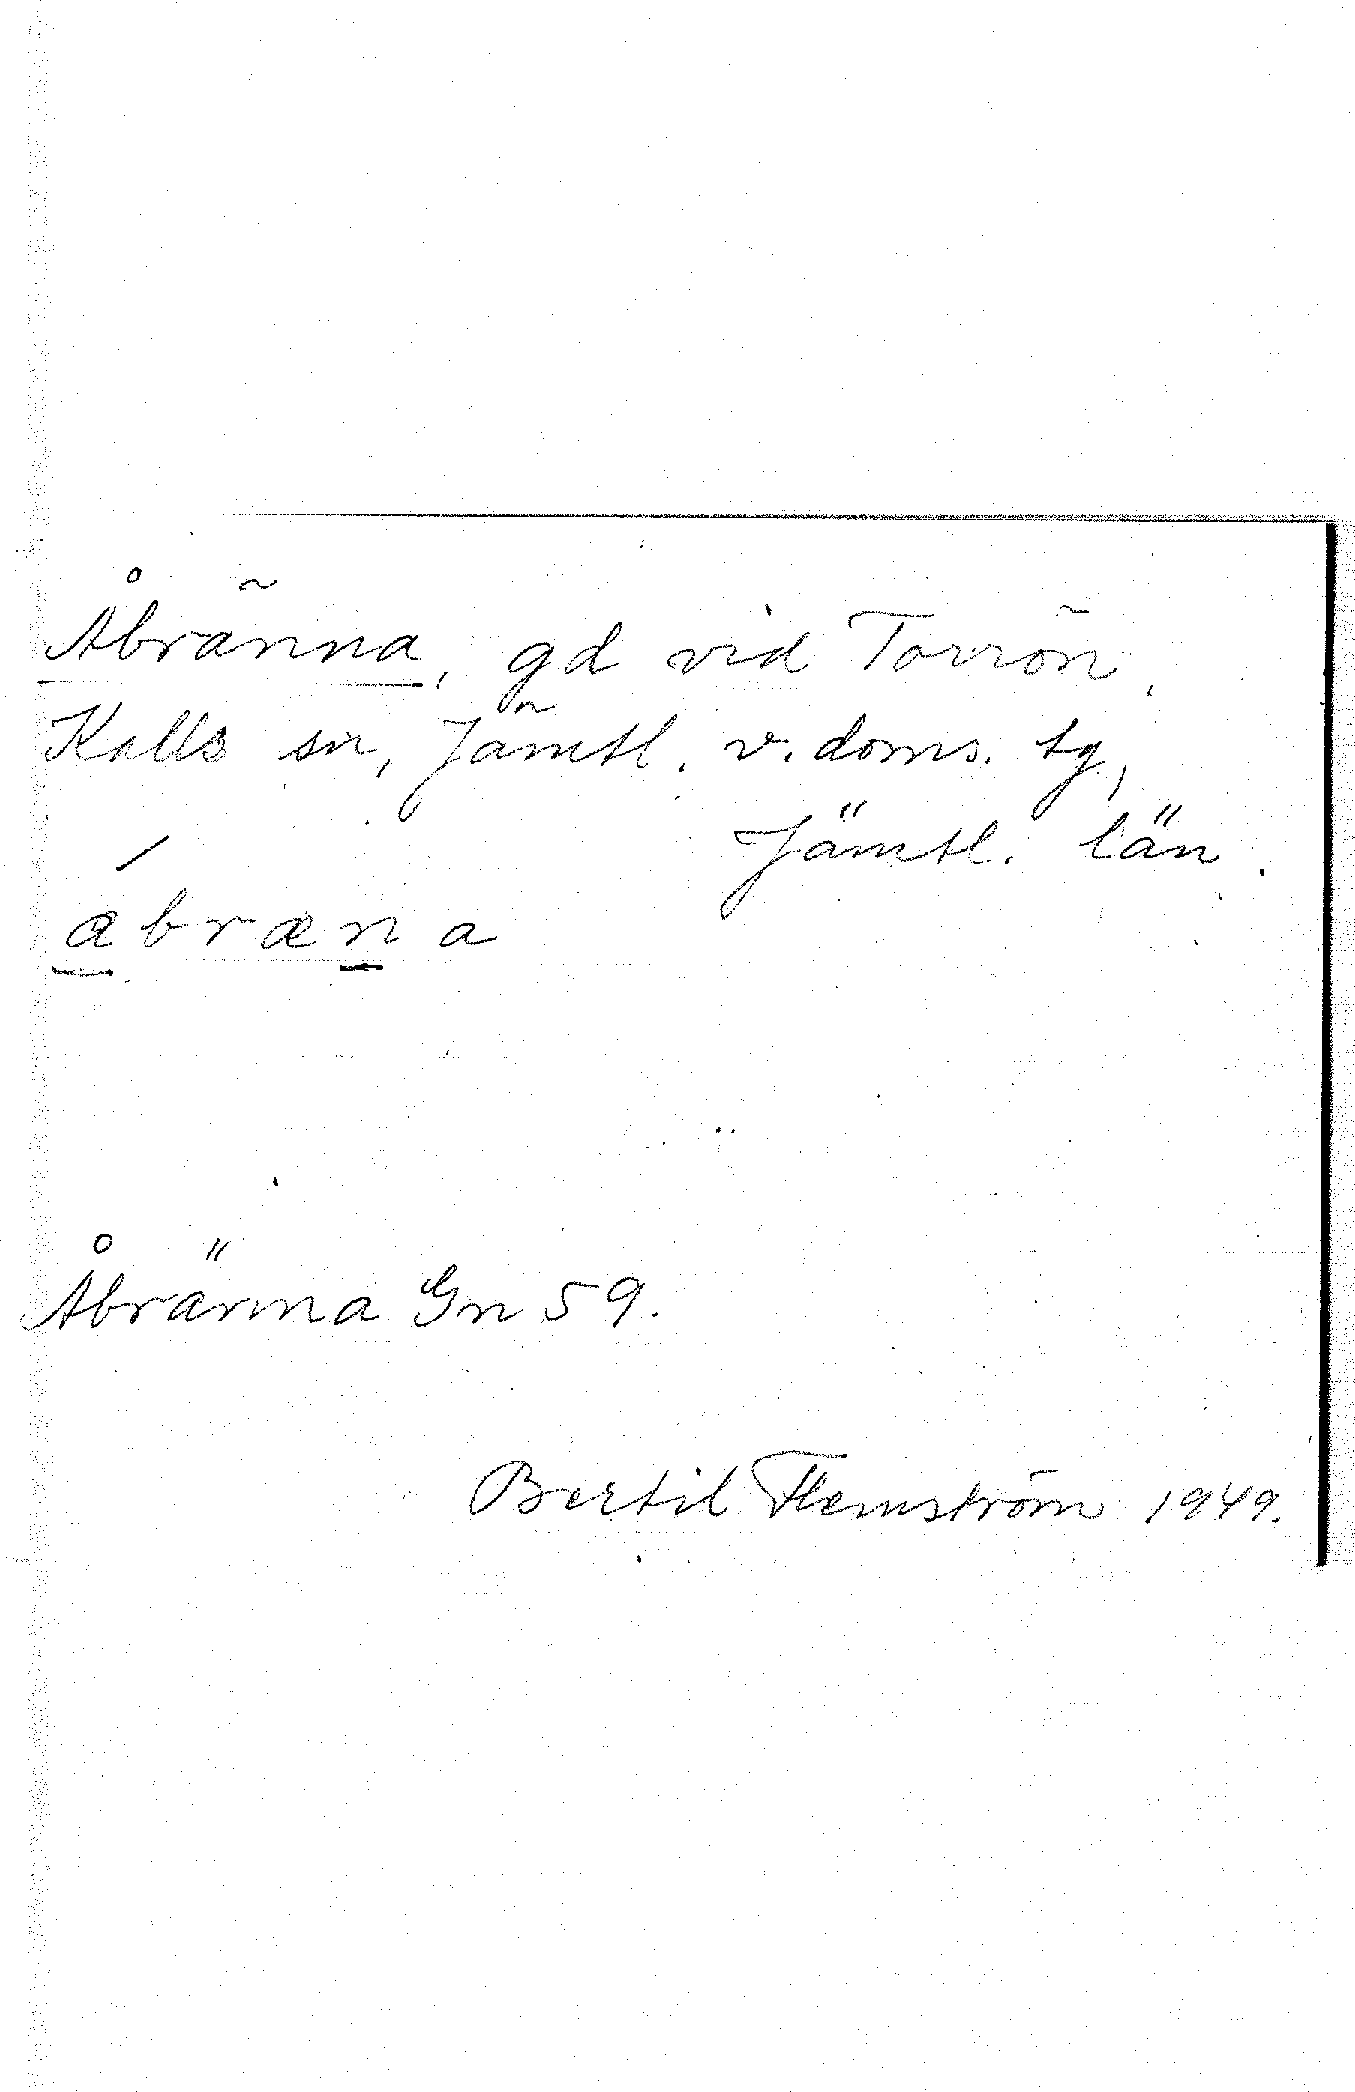 Åbränna, gd vid Torrön,
Kalls sn, Jämtl. v. doms. tg,
Jämtl. län.
æbræna
Åbränna Gn 59.
Bertil Flemström 1949.